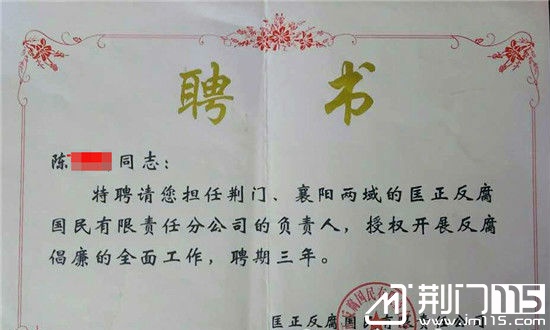 聘 书
陈 同志：
特聘请您担任荆门、襄阳两域的匡正反腐
国民有限责任分公司的负责人，授权开展反腐
倡廉的全面工作，聘期三年。
腐国民有
匡正反腐国民有限责任公司
荆门115
www.jm115.com